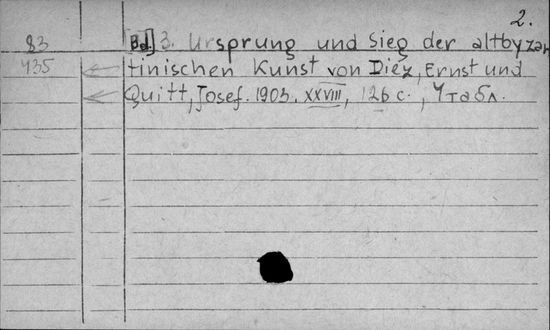 2.
83 Bd. 3. Ursprung und Sieg der altbyzan
435 tinischen Kunst von Diez, Ernst und
Quitt, Josef. 1903. XXVIII, 126 с., 4 табл.